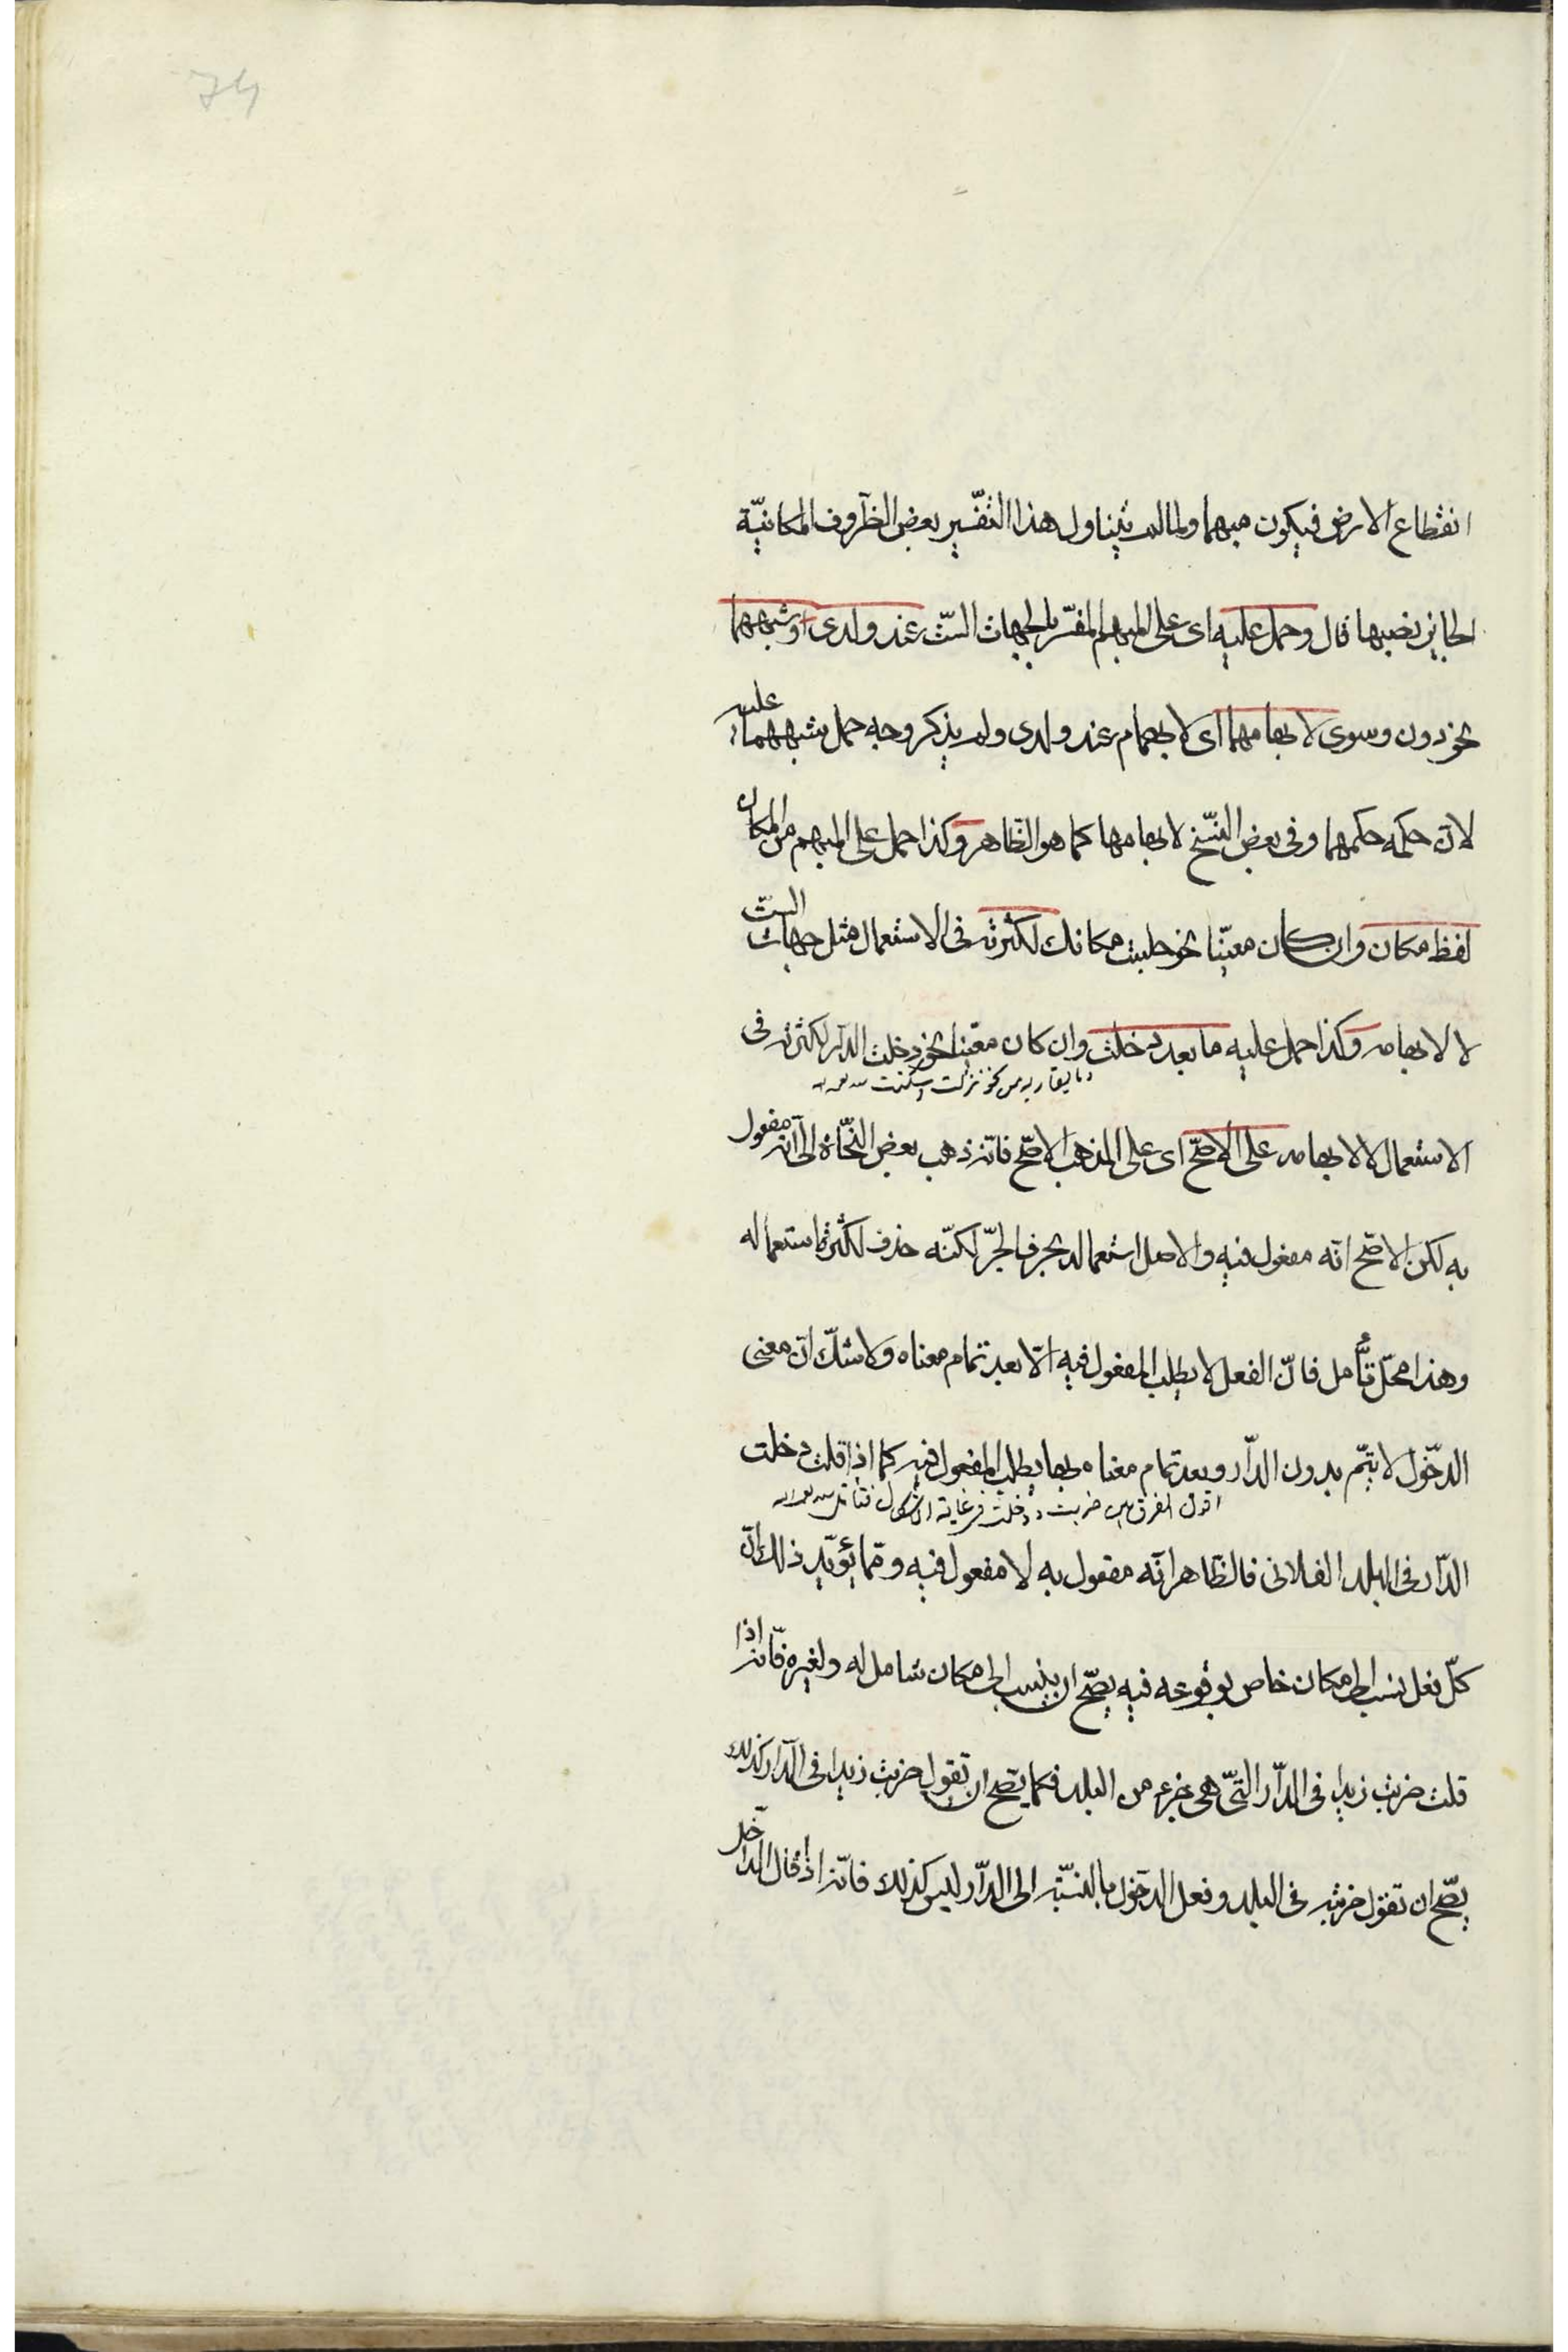 74
انقطاع الارض فيكون مبهما ولما لم يتناول هذا التفسير بعض الظروف المكانية
الجايز نصبها قال وحمل عليه اى على المبهم المفسّر بالجهات الستّ عند ولدى وشبههما
نحو دون وسوى لابهامهما اى لابهام عند ولدى ولم يذكر وجه حمل شبههما عليه
لانّ حكمه حكمهما وفى بعض النسّخ لابهامها كما هو الظّاهر وكذا حمل على المبهم من المكان
لفظ مكان وان كان معيّنا نحو جلست مكانك لكثرته فى الاستعمال مثل جهات الستّ
لا لابهامه وكذا حمل عليه ما بعد دخلت وان كان معيّنا نحو دخلت الدّار لكثرته فى
وما يقاربه من نحو نزلت وسكنت
الاستعمال لا لابهامه على الاصّح اى على المذهب الاصّح فانّه ذهب بعض النّحاة الى انّه مفعول
به لكن الاصّح انّه مفعول فيه والاصل استعماله بحرف الجرّ لكنّه حذف لكثرة استعماله
وهذا محلّ تأمّل فانّ الفعل لا يطلب المفعول فيه الّا بعد تمام معناه ولا شكّ انّ معنى
الدّخول لا يتمّ بدون الدّار وبعد تمام معناه بها يطلب المفعول فيه كما اذا قلت دخلت
اقول الفرق بين ضربت ودخلت فى غاية الاشكال فتأمّل
الدّار فى البلد الفلانى فالظّاهر انّه مفعول به لا مفعول فيه وممّا يؤيّد ذلك انّ
كلّ فعل نسب الى مكان خاص بوقوعه فيه يصّح ان ينسب الى مكان شامل له ولغيره فانّه اذا
قلت ضربت زيدا فى الدّار التّى هى جزء من البلد فكما يصّح ان تقول ضربت زيدا فى الدّار كذلك
يصّح ان تقول ضربته فى البلد وفعل الدّخول بالنسّبة الى الدّار ليس كذلك فانّه اذا قال الداخل